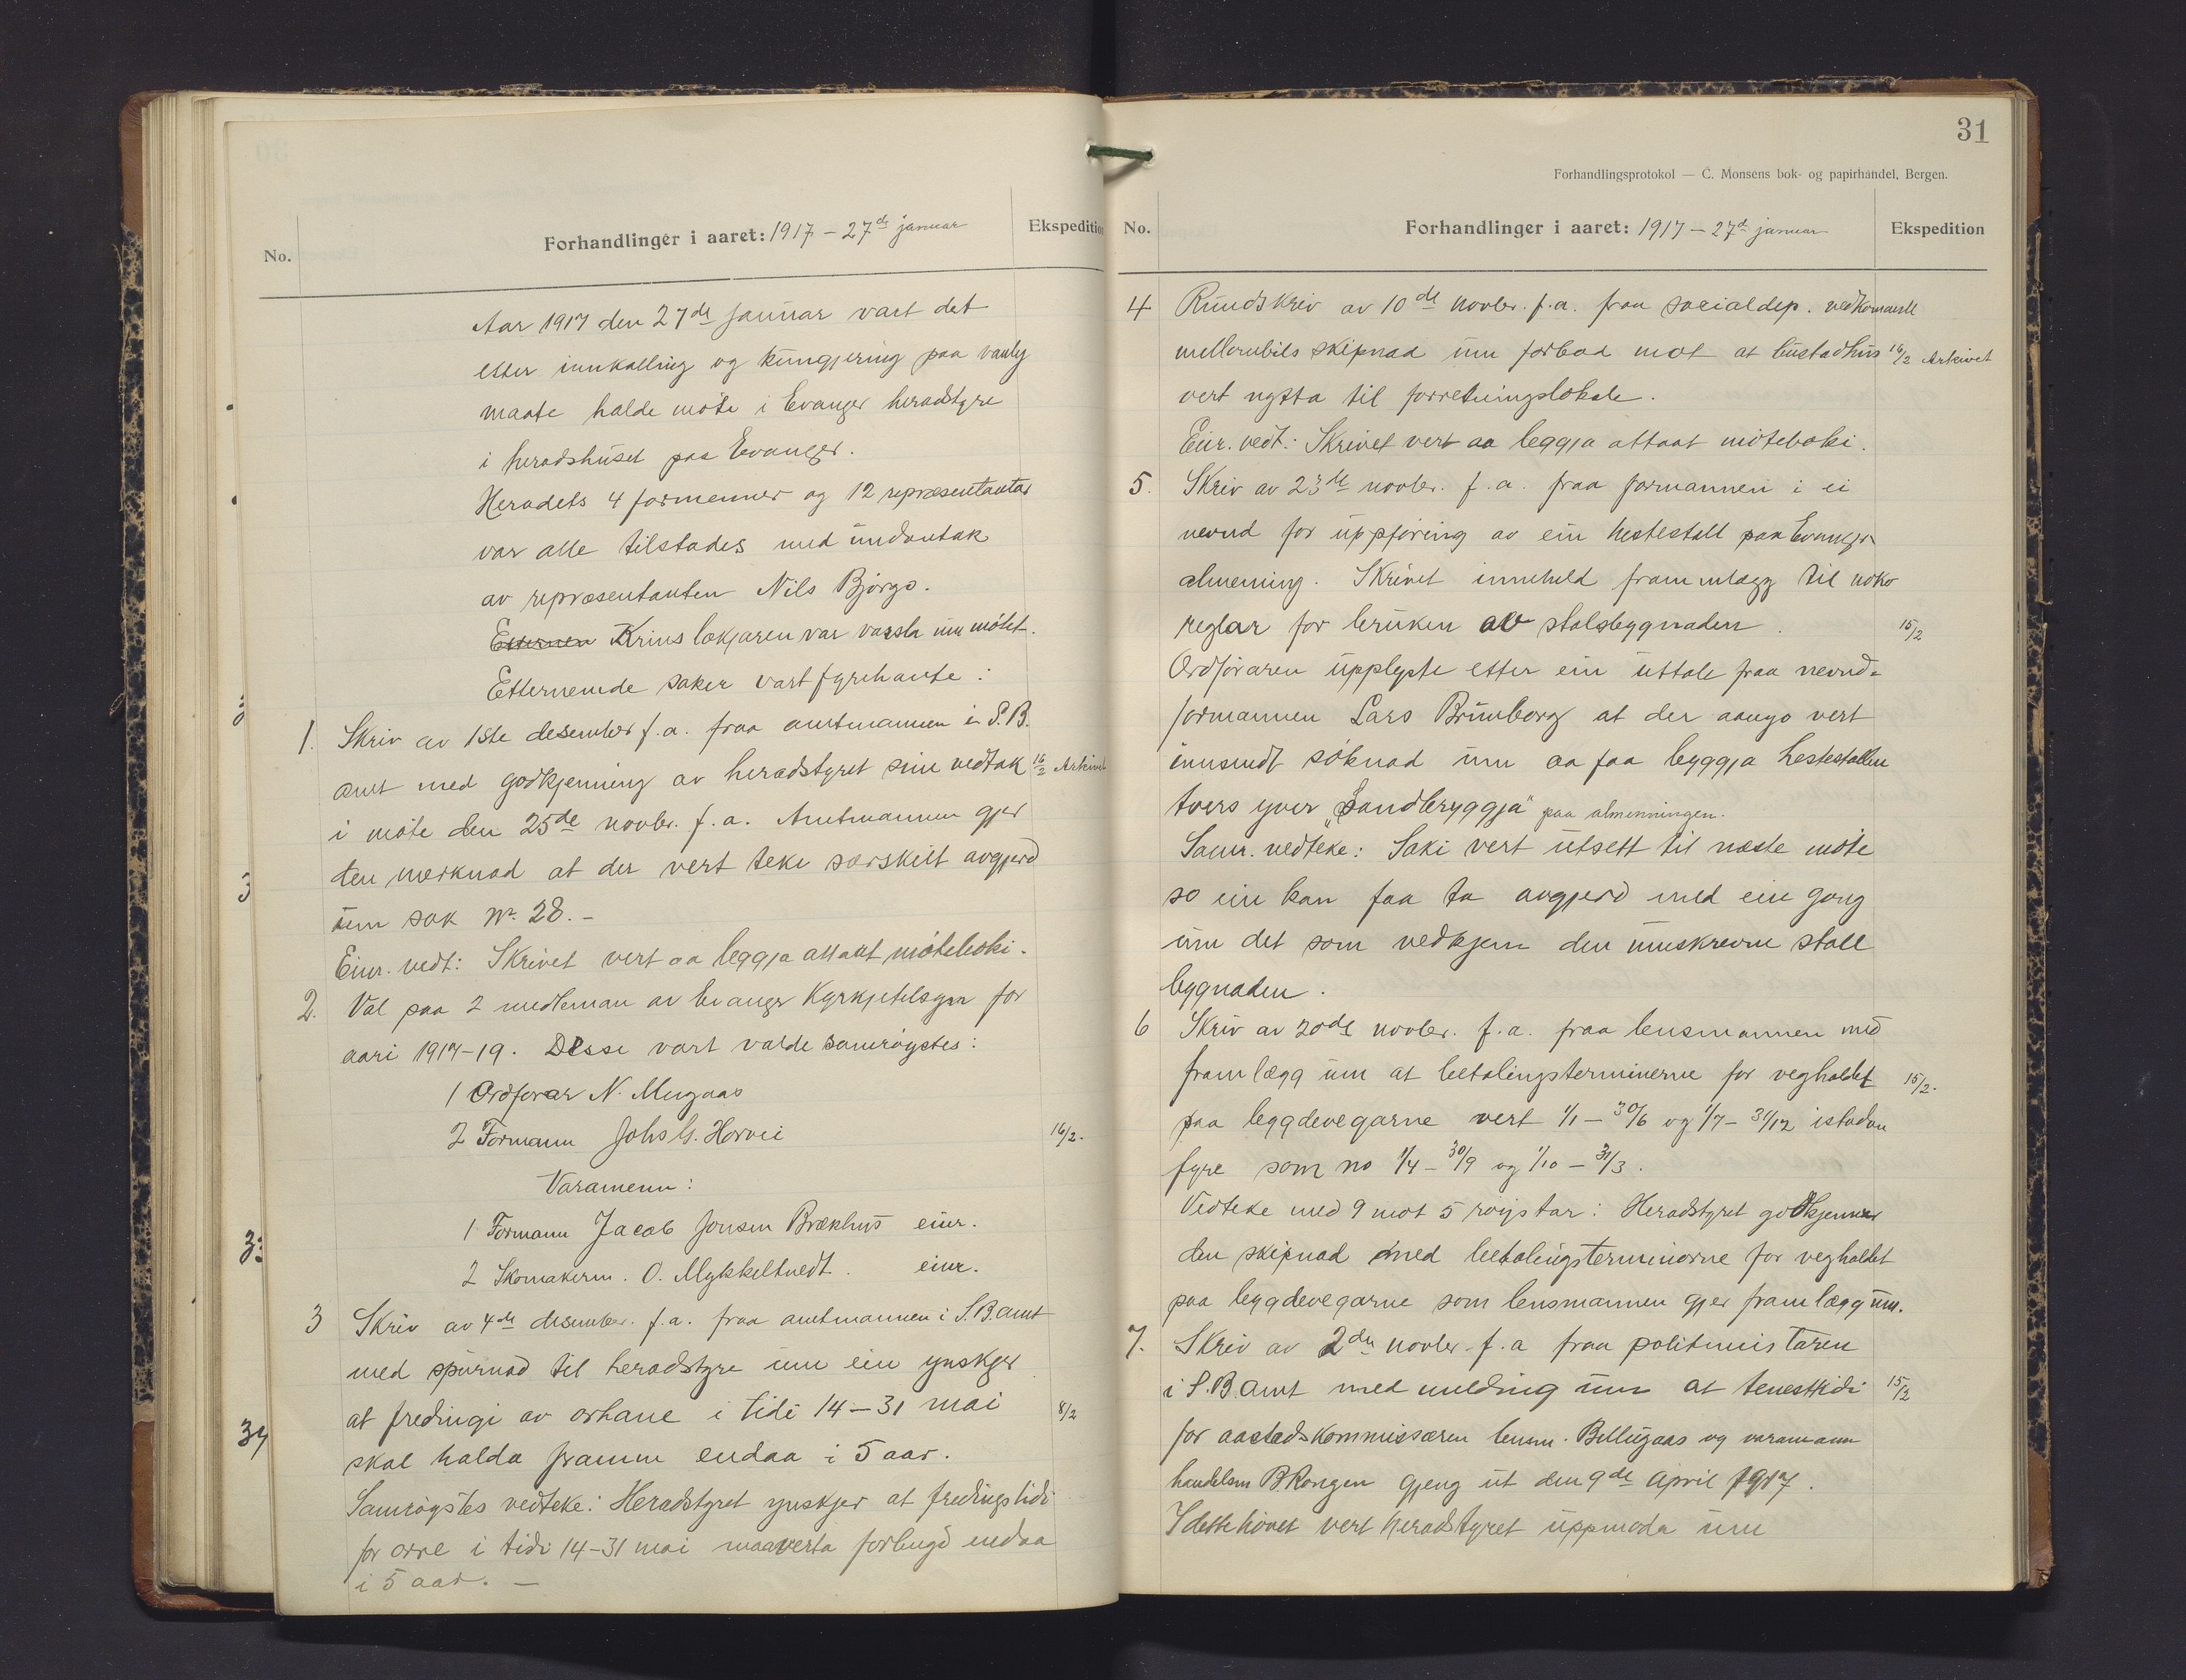 No.
Forhandlinger i aaret: 1917 – 27de januar
Ekspedition
Aar 1917 den 27de januar vart det
etter innkalling og kunngjering paa vanleg
maate halde møte i Evanger heradstyre
i heradshuset paa Evanger.
Heradets 4 formenner og 12 repræsentantar
var alle tilstades med undantak
av repræsentanten Nils Bjørgo.
Krinslækjaren var varsla um møtet.
Etternemde saker vart fyrehavte:
1. Skriv av 1ste desember f.a. fraa amtmannen i S.B.
amt med godkjenning av heradstyret sine vedtak 16/2 Arkivet
i møte den 25de novbr. f.a. Amtmannen gjer
den merknad at der vert teke særskilt avgjerd
um sak No. 28. –
Einr. vedt: Skrivet vert aa leggja attaat møteboki.
2. Val paa 2 medleman av Evanger Kyrkjetilsyn for
aari 1917–19. Desse vart valde samrøystes:
1 Ordførar N. Mugaas
2 Formann Johs G. Horvei 16/2.
Varamenn:
1 Formann Jacob Jonsen Brækhus einr.
2 Skomakerm. O. Mykkeltvedt. einr.
3 Skriv av 4de desember. f.a. fraa amtmannen i S.B. amt
med spurnad til heradstyre um ein ynskjer
at fredingi av orhane i tidi 14–31 mai 8/2
skal halda framm endaa i 5 aar.
Samrøystes vedteke: Heradstyret ynskjer at fredingstidi
for orre i tidi 14–31 mai maa verta forlengd endaa
i 5 aar. –
3
3
33
34
31
Forhandlingsprotokol — C. Monsens bok- og papirhandel, Bergen.
No.
Forhandlinger i aaret: 1917 – 27de januar
Ekspedition
4 Rundskriv av 10de novbr. f.a. fraa socialdep. vedkomande
mellombils skipnad um forbod mot at bustadhus 16/2 Arkivet
vert nytta til forretningslokale.
Einr. vedt: Skrivet vert aa leggja attaat møteboki.
5. Skriv av 23de novbr. f.a. fraa formannen i ei
nevnd for uppføring av ein hestestall paa Evanger
almening. Skrivet inneheld frammlegg til noko
reglar for bruken av stalsbygnaden. 15/2
Ordføraren upplyste etter ein uttale fraa nevnd-
formannen Lars Brunborg at der aango vert
innsendt søknad um aa faa byggja hestestallen
tvers yver „Sandbryggja" paa almenningen.
Samr. vedteke: Saki vert utsett til næste møte
so ein kan faa ta avgjerd med ein gong
um det som vedkjem den umskrevne stall
bygnaden.
6 Skriv av 20de novbr. f.a. fraa lensmannen med
framlegg um at betalingsterminerne for vegholdet 15/2.
paa bygdevegarne vert 1/1 – 30/6 og 1/7 – 31/12 istadan
fyre som no 1/4 – 30/9 og 1/10 – 31/3.
Vedteke med 9 mot 5 røystar: Heradstyret godkjenner
den skipnad med betalingsterminerne for vegholdet
paa bygdevegarne som lensmannen gjer framlegg um.
7. Skriv av 2den novbr. f.a fraa politimeistaren
i S.B. amt med melding um at tenestetidi 15/2
for aastadskommissæren lensm. Bellugaas og varamann
handelsm B Rongen gjeng ut den 9de april 1917.
I dette høvet vert heradstyret uppmoda um